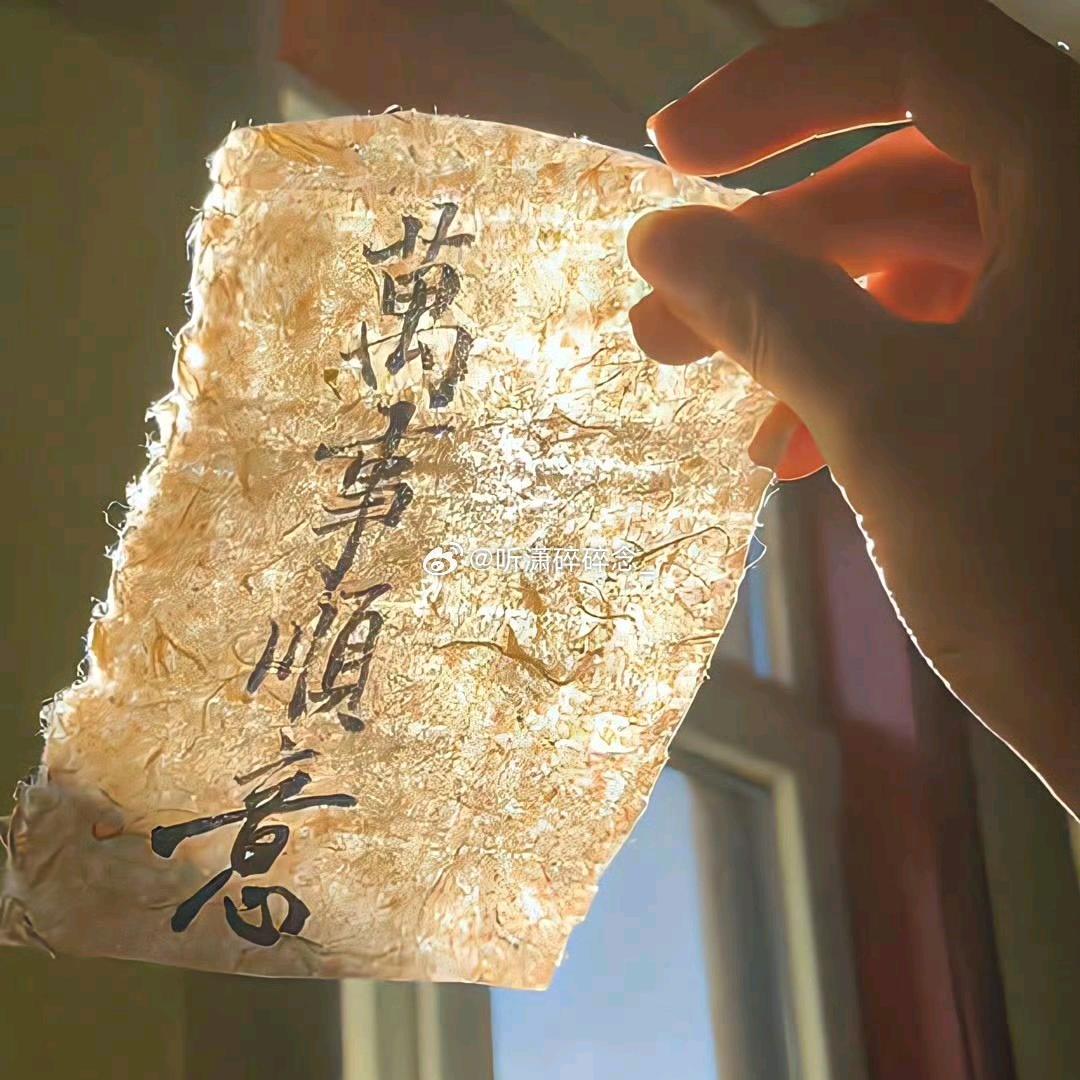 萬事順意
@听潇碎碎念_